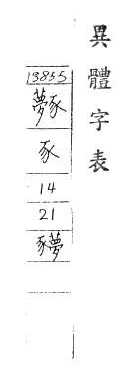 異體字表
13855
⿰夢豕
豕
14
21
⿰豕夢